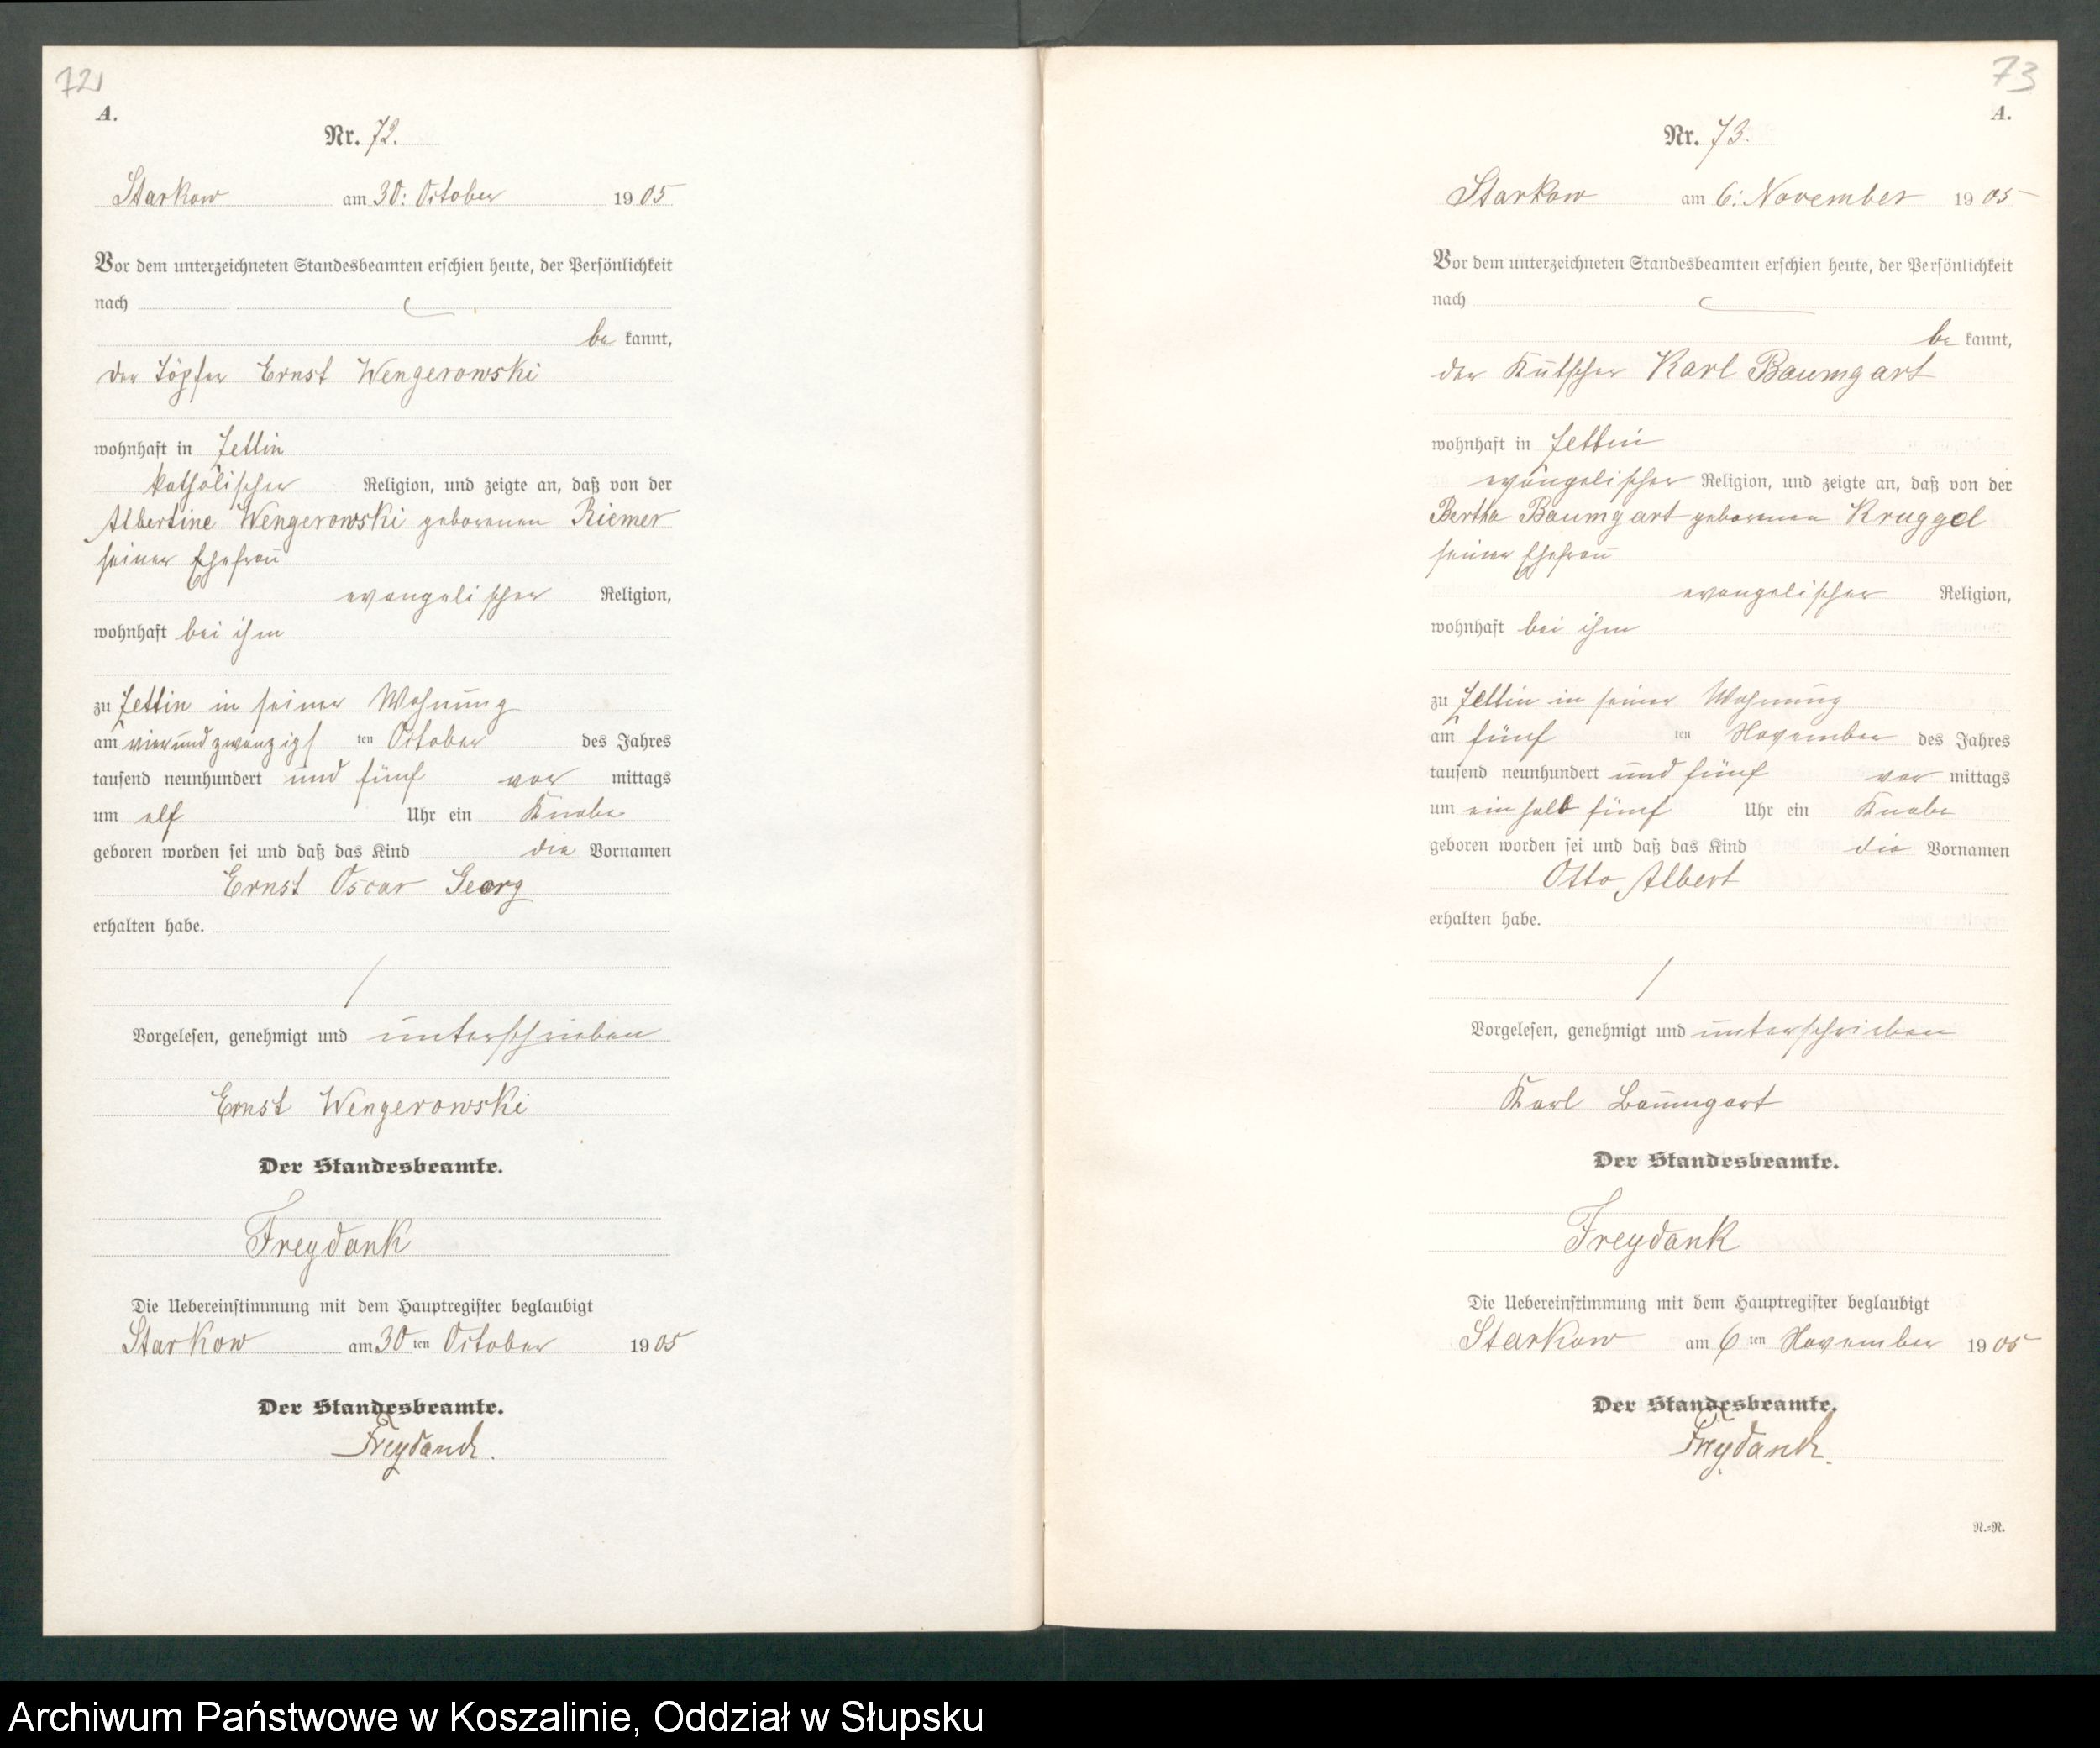 72
A.
Nr. 72.
Starkow am 30: October 1905
Vor dem unterzeichneten Standesbeamten erschien heute, der Persönlichkeit
nach
be kannt,
der Töpfer Ernst Wengerowski
wohnhaft in Zettin
katholischer Religion, und zeigte an, daß von der
Albertine Wengerowski geborenen Riemer
seiner Ehefrau
evangelischer Religion,
wohnhaft bei ihm
zu Zettin in seiner Wohnung
am vierundzwanzigsten October des Jahres
tausend neunhundert und fünf vor mittags
um elf Uhr ein Knabe
geboren worden sei und daß das Kind die Vornamen
Ernst Oscar Georg
erhalten habe.
Vorgelesen, genehmigt und unterschrieben
Ernst Wengerowski
Der Standesbeamte.
Freydank
Die Uebereinstimmung mit dem Hauptregister beglaubigt
Starkow am 30ten October 1905
Der Standesbeamte.
Freydanck.
73
A.
Nr. 73.
Starkow am 6: November 1905
Vor dem unterzeichneten Standesbeamten erschien heute, der Persönlichkeit
nach
be kannt,
der Kutscher Karl Baumgart
wohnhaft in Zettin
evangelischer Religion, und zeigte an, daß von der
Bertha Baumgart geborenen Kruggel
seiner Ehefrau
evangelischer Religion,
wohnhaft bei ihm
zu Zettin in seiner Wohnung
am fünf ten November des Jahres
tausend neunhundert und fünf vor mittags
um ein halb fünf Uhr ein Knabe
geboren worden sei und daß das Kind die Vornamen
Otto Albert
erhalten habe.
Vorgelesen, genehmigt und unterschrieben
Karl Baumgart
Der Standesbeamte.
Freydank
Die Uebereinstimmung mit dem Hauptregister beglaubigt
Starkow am 6ten November 1905
Der Standesbeamte.
Freydanck.
R.=R.
Archiwum Państwowe w Koszalinie, Oddział w Słupsku